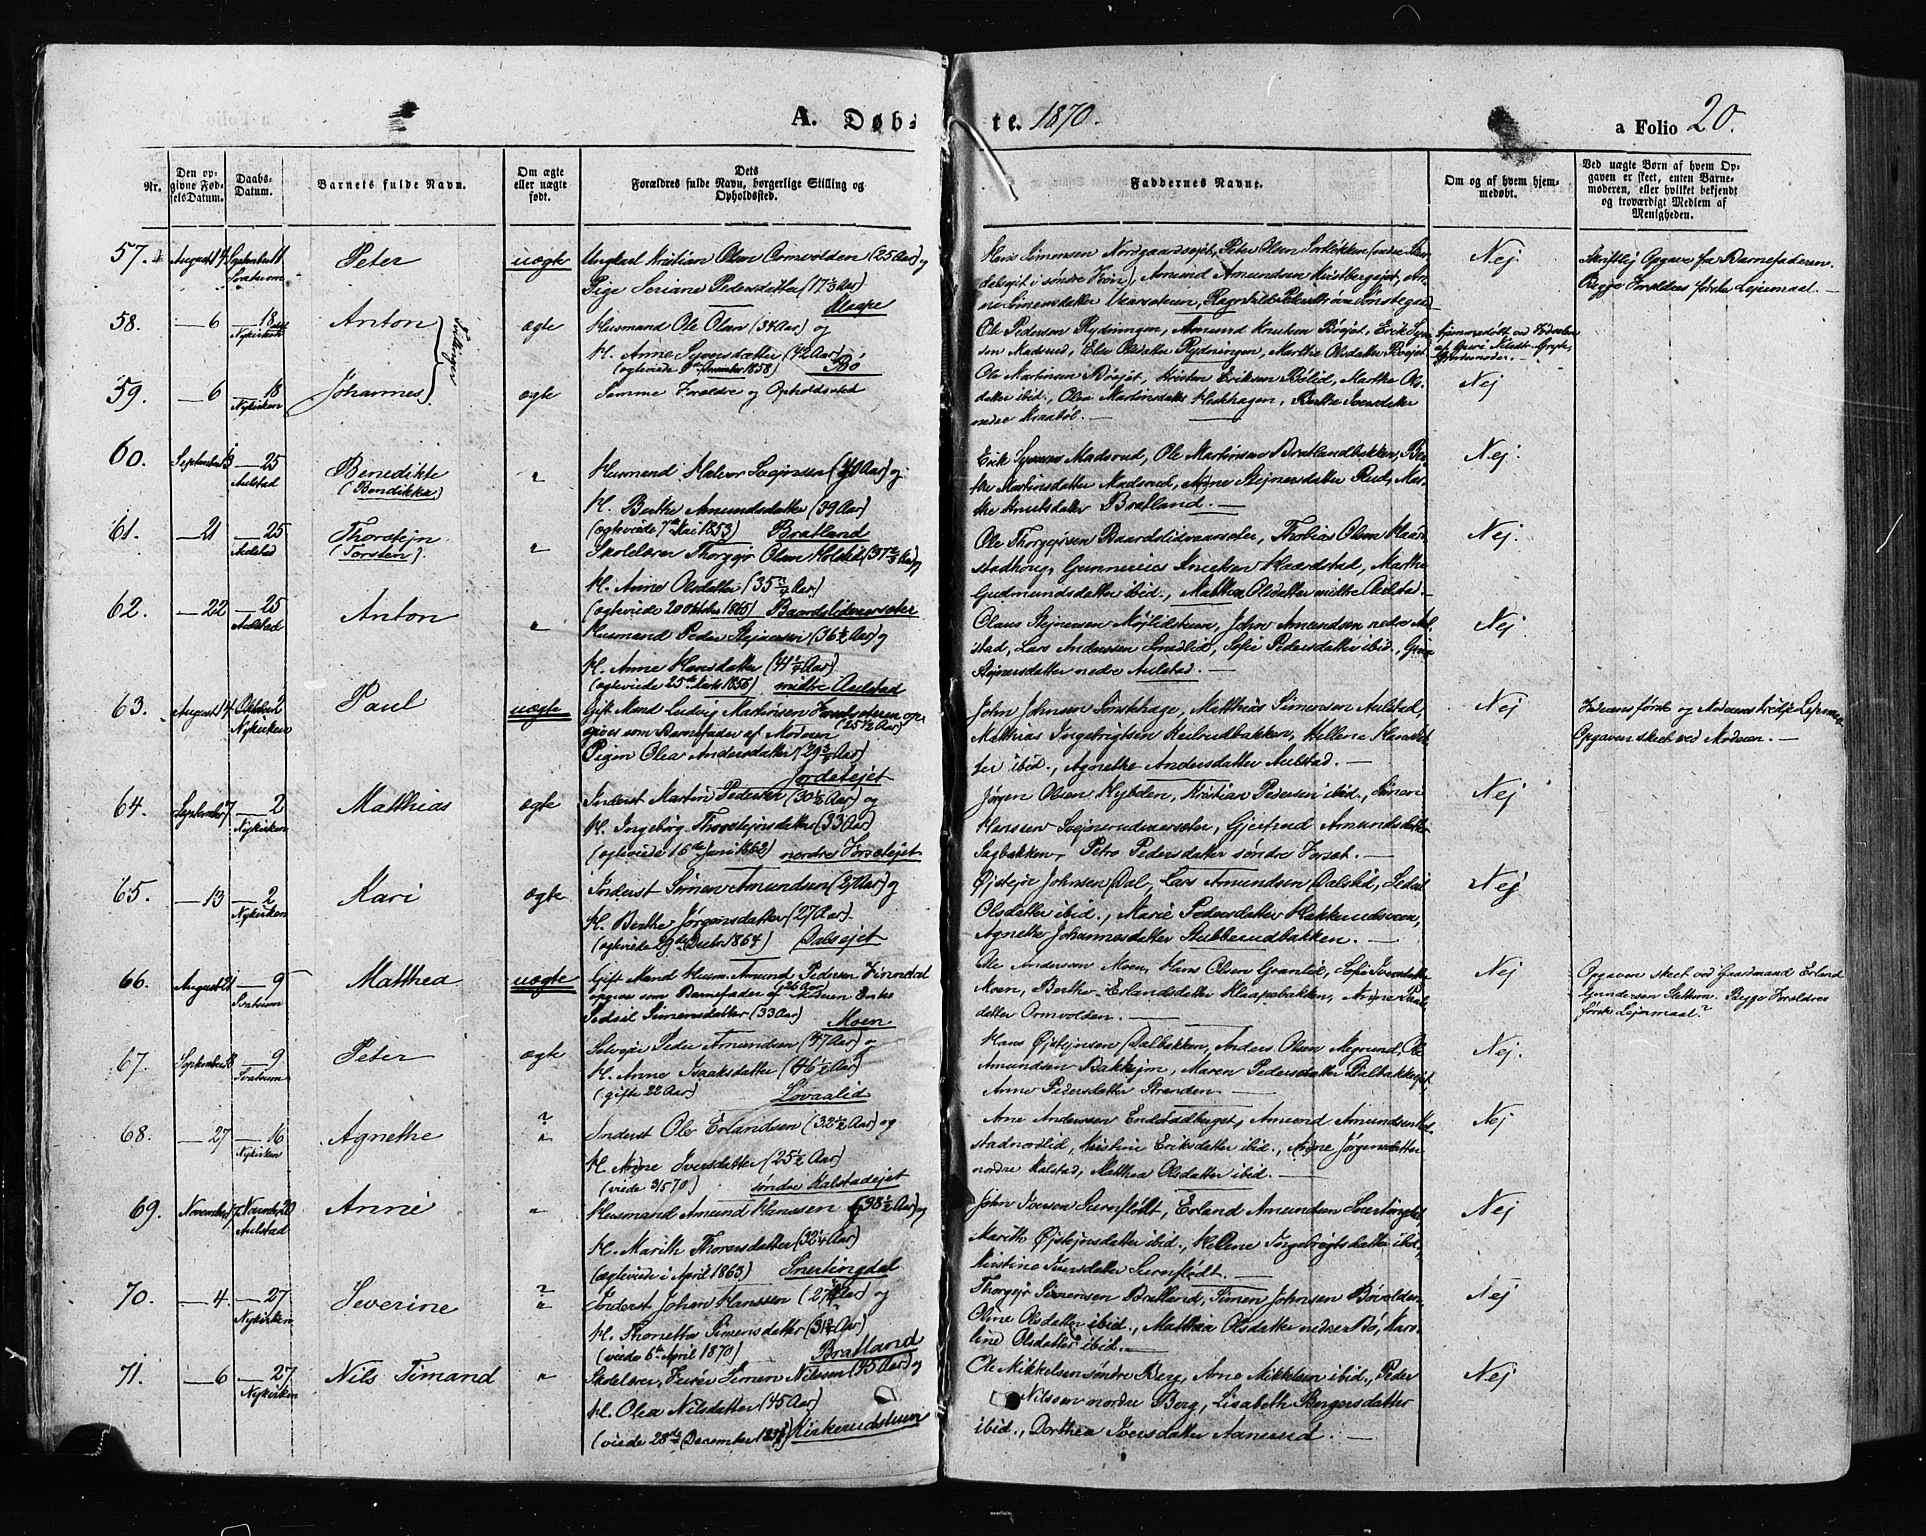 A. Døb-
te. 1870.
a Folio 20.
Nr.
Den op-
givne Fød-
selsDatum.
Daabs-
Datum.
Barnets fulde Navn.
Om ægte
eller uægte
født.
Dets
Forældres fulde Navn, borgerlige Stilling og
Opholdssted.
Faddernes Navne.
Om og af hvem hjem-
medøbt.
Ved uægte Børn af hvem Op-
gaven er skeet, enten Barne-
moderen, eller hvilket bekjendt
og troværdigt Medlem af
Menigheden.
57.
August 14
September 11
Svatsum
Peter
uægte
Ungkarl Kristian Olsen Ormvolden (25 Aar) og
Pige Seriane Pedersdatter (17½ Aar)
Klaape
Hans Simensen Nordgaardsejet, Peter Olsen
Amund Amundsen
Nej
Skriftlig Opgave fra Barnefaderen.
Begge Forældres første Lejermaal.
58.
— 6
— 18
Nykirken
Anton
Tvillinger
ægte
Husmand Ole Olsen (34 Aar) og
H. Anne Syversdatter (42 Aar)
(ægteviede December 1858) Bø
Ole Pedersen Rydningen, Amund Knutsen Bøejet, Erik Syver-
sen Madsrud, Else Olsdatter Rydningen, Marthe Olsdatter Bøejet
59.
— 6
18
Nykirken
Johannes
ægte
Samme Forældre og Opholdssted
Ole Martinsen Bøejet, Kristen Eriksen Bølid, Marthe Ols-
datter ibid., Olea Martinsdatter Heskhagen, Berthe Iversdatter
nedre Kraabøl.
Nej
60.
September 3
— 25
Aulstad
Benedikte
(Bendikka)
"
Husmand Halvor Svejnsen (40 Aar) og
H. Berthe Amundsdatter (39 Aar)
(ægteviede 7de Mai 1853) Bratland
Erik Syversen Madsrud, Ole Martinsen Bratlandbakken, Ber-
the Martinsdatter Madsrud, Anne Stejnersdatter Rud, Mar-
the Knutsdatter Bratland.
Nej.
61.
— 21
— 25
Aulstad
Thorstejn
(Torsten).
"
Skolelærer Thorgejr Olsen Holslid (37⅔ Aar) og
H. Anne Olsdatter (35¾ Aar)
(ægteviede 20 Oktober 1865) Baardslidvarsæter
Ole Thorgejrsen Baardslidvaarsæter, Thobias Olsen Haar-
stadhoug, Gunnerius Knutsen Haardstad, Marthe
Gudmundsdatter ibid., Mathea Olsdatter midtre Aulstad.
Nej.
62.
— 22
— 25
Aulstad
Anton
"
Husmand Peder Stejnersen (36½ Aar) og
H. Anne Hansdatter (41¼ Aar)
(ægteviede 25de Marts 1856) midtre Aulstad
Olaus Stejnersen Møjlidstuen, John Amundsen nedre Aul-
stad, Lars Anderssen Smedlid, Sofie Pedersdatter ibid.,
Stejnersdatter nedre Aulstad.
Nej.
63.
August 14
Oktober 2
Nykirken
Paul
uægte
Gift Mand Ludvig Martinsen op-
gives som Barnefader af Moderen (25½ Aar)
Pigen Olea Andersdatter (29¾ Aar)
Jordetejet
John Johnsen Forsthage, Matthias Simensen Aulstad,
Mathias Ingebrigtsen Keilrudbakken, Hellene Hansdat-
ter ibid., Agnethe Andersdatter Aulstad.
Nej
Faderens første og Moderens tredje Lejermaal
Opgaven skeet ved Moderen.
64.
September 7
— 2
Nykirken
Matthias
ægte
Inderst Martin Pedersen (30½ Aar) og
H. Ingebørg Thorstejnsdatter (33 Aar)
(ægteviede 16de Juni 1862) nordre Forsetejet
Jørgen Olsen Hybden, Kristian Pedersen ibid., Simen
Hanssen Svejnsrudvarsæter, Gjertrud Amundsdatter
Sagbakken, Petra Pedersdatter søndre Forset.
Nej
65.
— 13
— 2
Nykirken
Kari
ægte
Inderst Simen Amundsen (27 Aar) og
H. Berthe Jørgensdatter (27 Aar)
(ægteviede 29de Decbr 1864) Dalsejet
Øjstejn Johnsen Dal, Lars Amundsen Dalslid, Sedsil
Olsdatter ibid., Marie Pedersdatter Hakkerudsveen,
Agnethe Johannesdatter Stubberudbakken.
Nej
66.
August 21
— 9
Svatsum
Matthea
uægte
Gift Mand Husm. Amund Pedersen Finnstad
opgives som Barnefader af Moderen Enke (26 Aar)
Sedsil Simensdatter (33 Aar)
Moen
Ole Andersen Moen, Hans Olsen Granlid, Sofie Iversdatter
Moen, Berthe Erlandsdatter Klaapebakken, Anne Paul-
datter Ormvolden.
Nej
Opgaven skeet ved Gaardmand Erland
Gundersen Slettum. Begge Forældres
første Lejermaal?
67.
September 8
— 9
Svatsum
Peter
ægte
Selvejer Peder Amundsen (47 Aar) og
H. Anne Isaaksdatter (46½ Aar)
(gifte 22 Aar)
Lovaalid
Hans Øjstejnsen Dalbakken, Anders Olsen Megrund, Ole
Amundsen Bakkejon, Maren Pedersdatter Dalbakkejet,
Anne Pedersdatter Stranden
Nej.
68.
— 27
— 16
Nykirken
Agnethe
"
Inderst Ole Erlandsen (32½ Aar) og
H. Anne Iversdatter (25½ Aar)
(viede 3/5 70) søndre Kalstadejet
Arne Anderssen Endstadberget, Amund Amundsen Kal-
stadnordlid, Kristine Eriksdatter ibid., Anne Jørgensdatter
nordre Kalstad, Matthea Olsdatter ibid.
Nej
69.
November 7
November 20
Aulstad
Anne
"
Husmand Amund Hanssen (38½ Aar) og
H. Marith Thoresdatter (32¼ Aar)
(ægteviede i April 1863) Snertingdal
John Iversen Surnflødt, Erland Amundsen Snertingdal,
Marith Øjstejnsdatter ibid., Helene Ingebrigtsdatter ibid.,
Kristine Iversdatter Surnflødt.
Nej
70.
— 4.
— 27
Nykirken
Severine
"
Inderst Johan Hanssen (27 Aar) og
H. Thonetha Simensdatter (31 Aar)
(viede 6te April 1870) Bratland
Thorgejr Simensen Bratland, Simen Johnsen Bøvolden,
Oline Olsdatter ibid., Matthea Olsdatter nedre Bø, Kar-
line Olsdatter ibid.
Nej
71.
— 6
— 27
Nykirken
Nils Timand
"
Skolelærer, Fører Simen Nilssen (45 Aar) og
H. Olea Nilsdatter (45 Aar)
(viede 28de December) Kirkerudstuen
Ole Mikkelsen søndre Berg, Arne Mikkelsen ibid., Peder
Nilssen nordre Berg, Lisabeth Børgersdatter
ibid., Dorthea Iversdatter Aanerud.
Nej